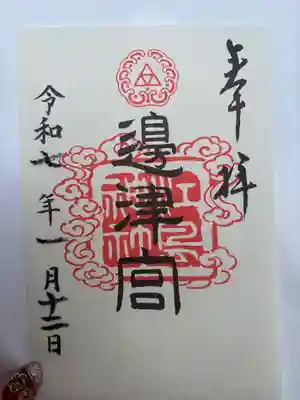 奉拝
邊津宮
令和七年一月十二日